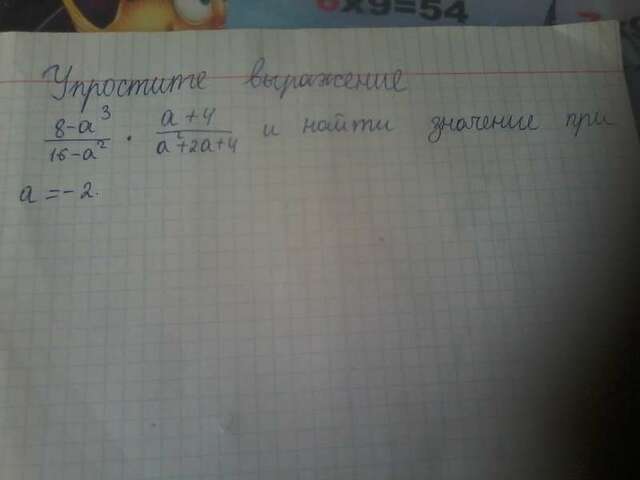 6x9=54
Упростите выражение
8-a³/16-a² · a+4/a²+2a+4 и найти значение при
a=-2.